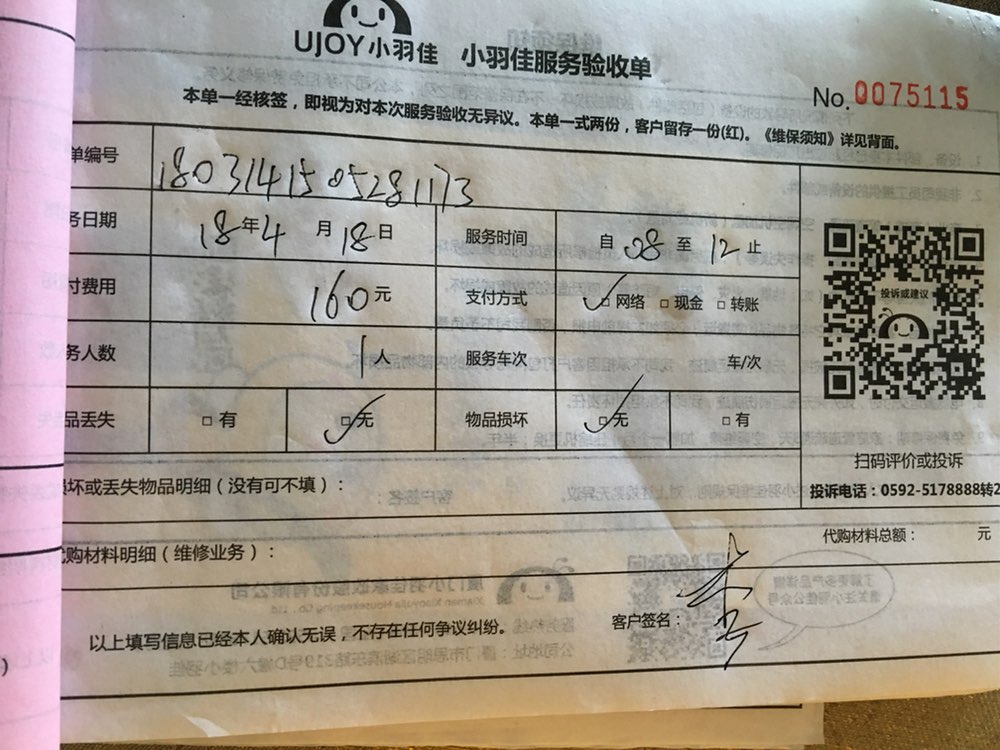 UJOY小羽佳 小羽佳服务验收单
No.0075115
本单一经核签，即视为对本次服务验收无异议。本单一式两份，客户留存一份(红)。《维保须知》详见背面。
单编号 1803141505281173
务日期 18年4月18日 服务时间 自08至12止
付费用 160元 支付方式 ✓□网络 □现金 □转账
务人数 1人 服务车次 车/次
品丢失 □有 ✓□无 物品损坏 ✓□无 □有
投诉或建议
扫码评价或投诉
投诉电话：0592-5178888转2
损坏或丢失物品明细（没有可不填）：
代购材料明细（维修业务）：
代购材料总额： 元
以上填写信息已经本人确认无误，不存在任何争议纠纷。
客户签名：